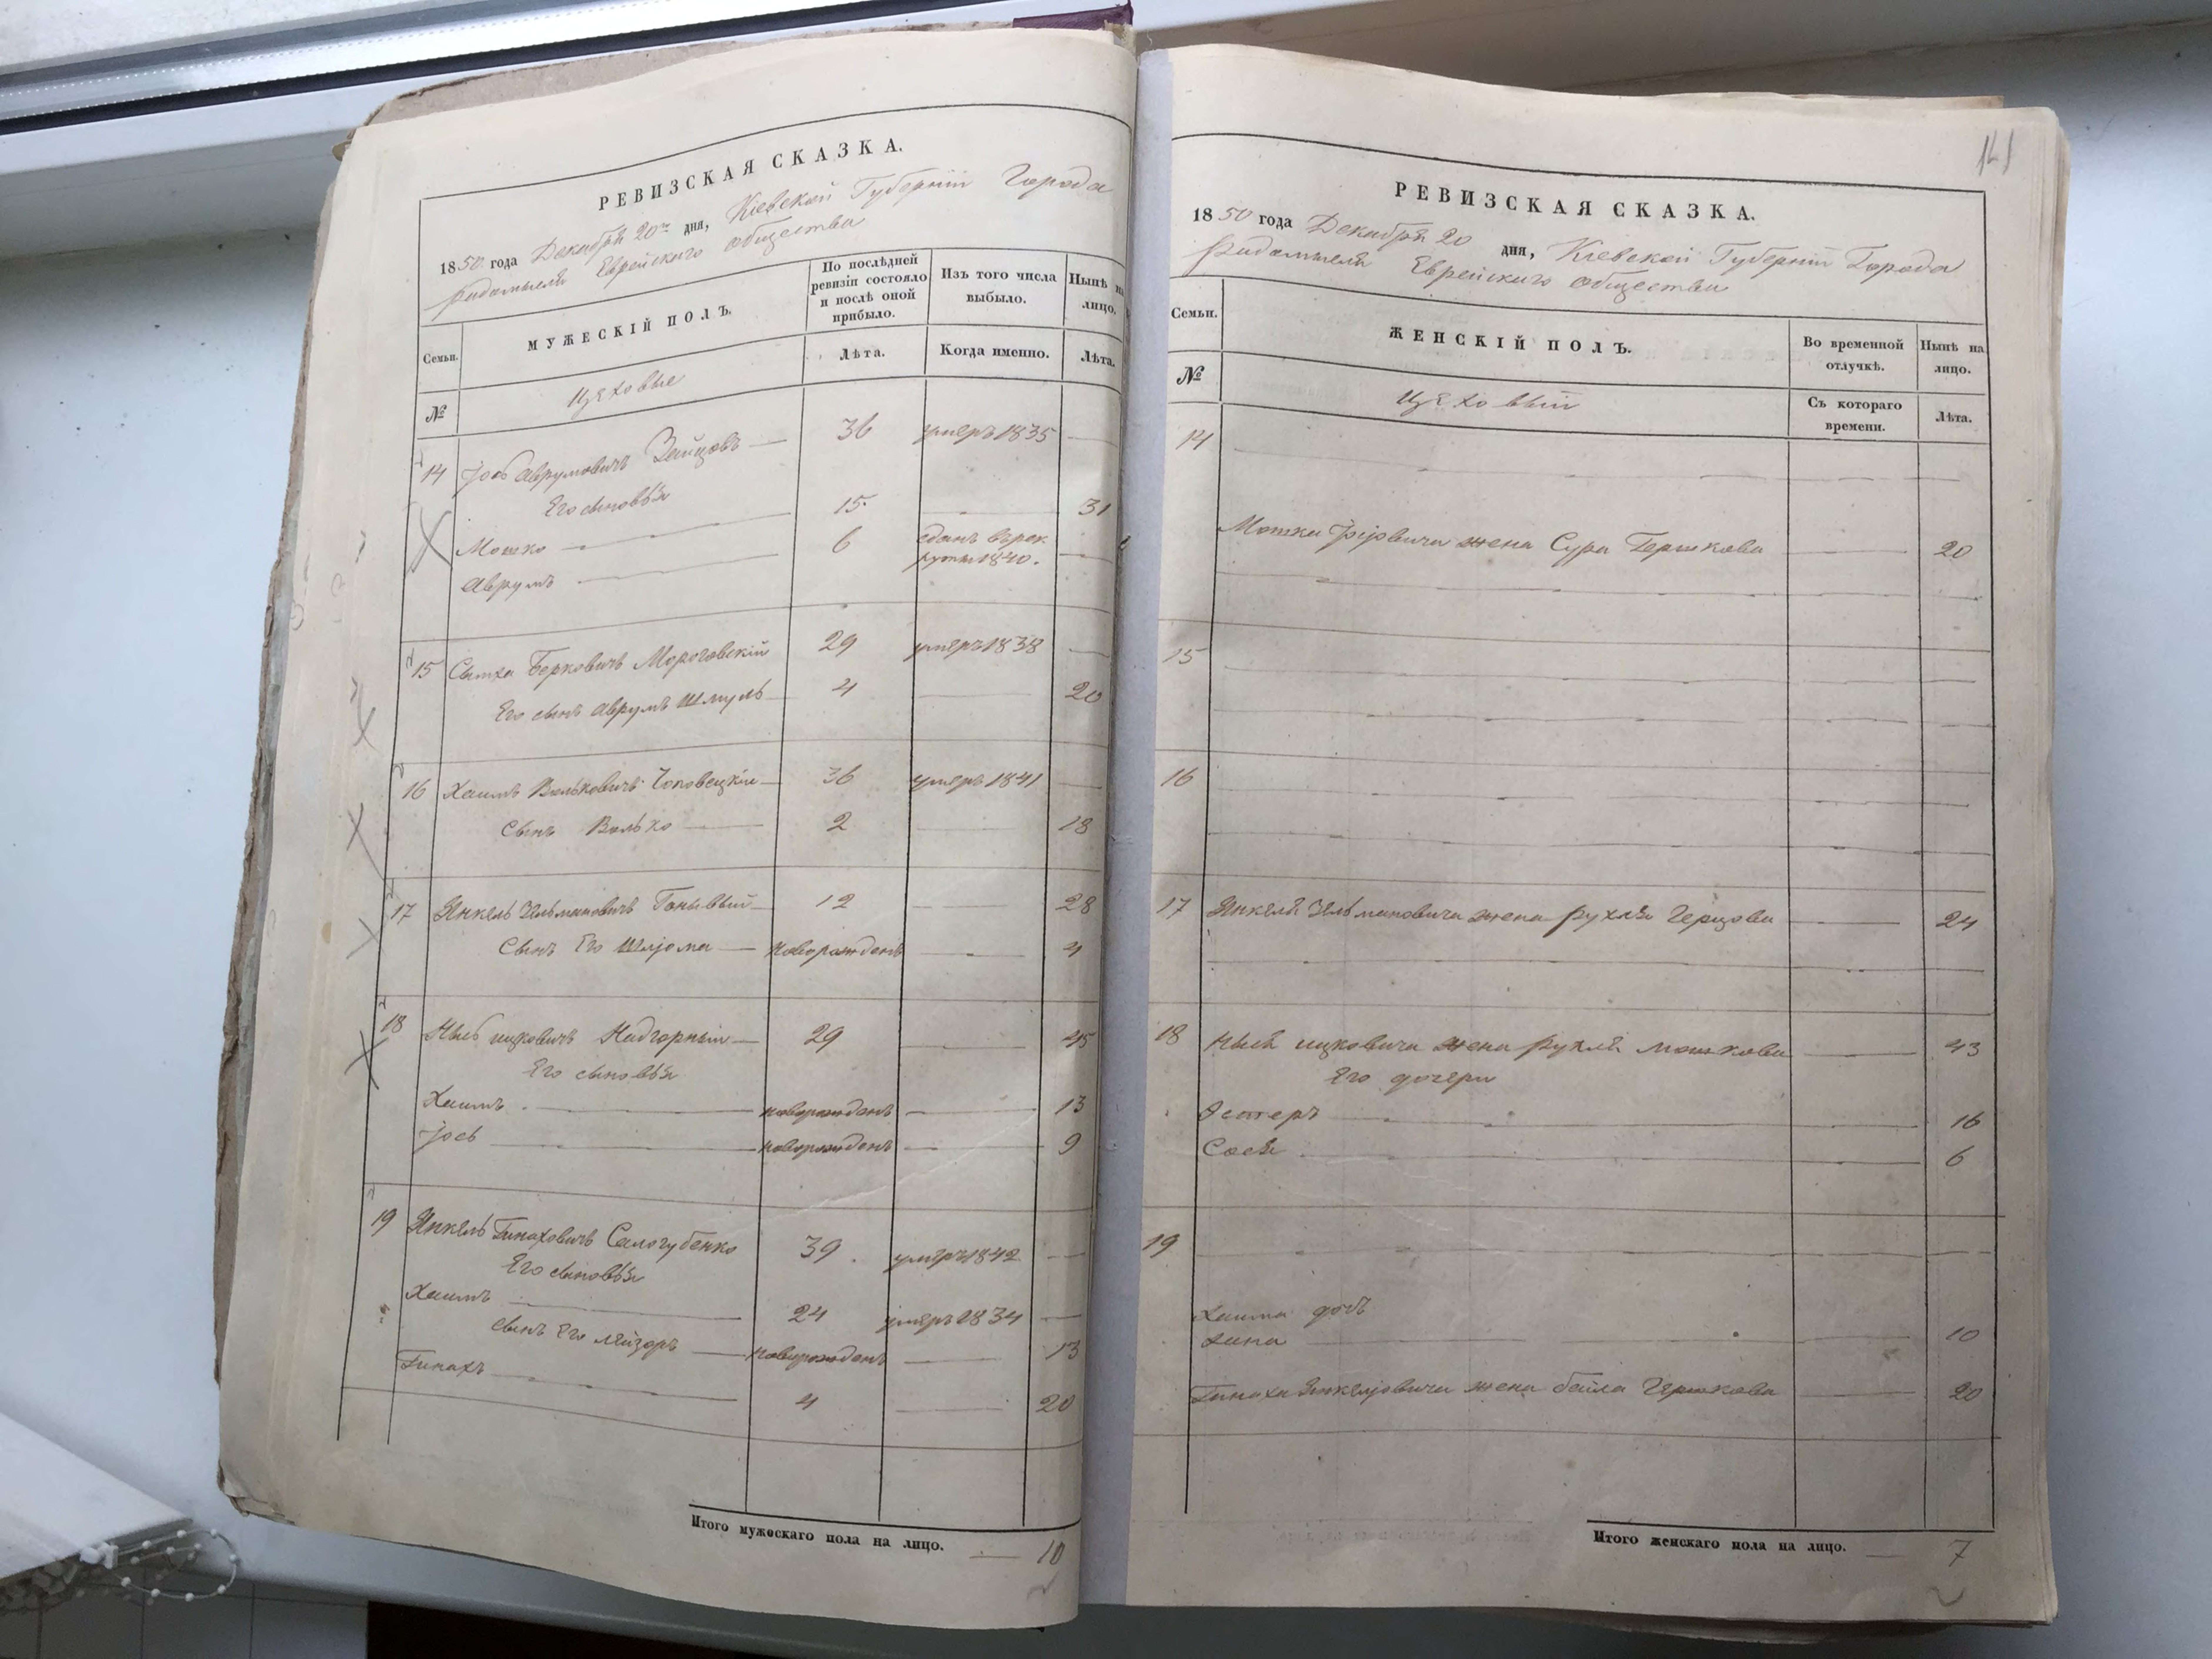 РЕВИЗСКАЯ СКАЗКА.
1850 года Декабря 20го дня, Кіевской Губерніи Города
Радомысля Еврейскаго общества
Семьи.
МУЖЕСКІЙ ПОЛЪ.
По послѣдней ревизіи состояло и послѣ оной прибыло.
Изъ того числа выбыло.
Нынѣ на лицо.
№
Лѣта.
Когда именно.
Лѣта.
Цеховые
14 Іось Аврумовичъ Зайцовъ 36 умеръ 1835
Его сыновья
Мошко 15 31
Аврумъ 6 сданъ въ рек
руты 1840.
15 Сымха Берковичъ 29 умеръ 1838
Его сынъ Аврумъ Шмуль 4 20
16 Хаимъ Вольковичъ Чоповецкій 36 умеръ 1841
Сынъ Волько 2 18
17 Янкель Зельмановичъ 12 28
Сынъ Его Шлјома новорожденъ 4
18 Ицковичъ Надгорный 29 45
Его сыновья
Хаимъ новорожденъ 13
Іось новорожденъ 9
19 Янкель Пинаховичъ Салогубенко 39 умеръ 1842
Его сыновья
Хаимъ 24 умеръ 1834
сынъ Его Лейзоръ новорожденъ 13
Пинахъ 4 20
Итого мужескаго пола на лицо. 10
141
РЕВИЗСКАЯ СКАЗКА.
1850 года Декабря 20 дня, Кіевской Губерніи Города
Радомысля Еврейскаго общества
Семьи.
ЖЕНСКІЙ ПОЛЪ.
Во временной отлучкѣ.
Нынѣ на лицо.
№
Съ котораго времени.
Лѣта.
Цеховый
14
Мошка Іосјовича жена Сура Гершкова 20
15
16
17 Янкеля Зельмановича жена Рухля Герцова 24
18 Ицковича жена Рухля Мошкова 43
Его дочери
Эстеръ 16
Сося 6
19
Хаима дочь
Хана 10
Пинаха Янкелјовича жена Бейла Гершкова 20
Итого женскаго пола на лицо. 7